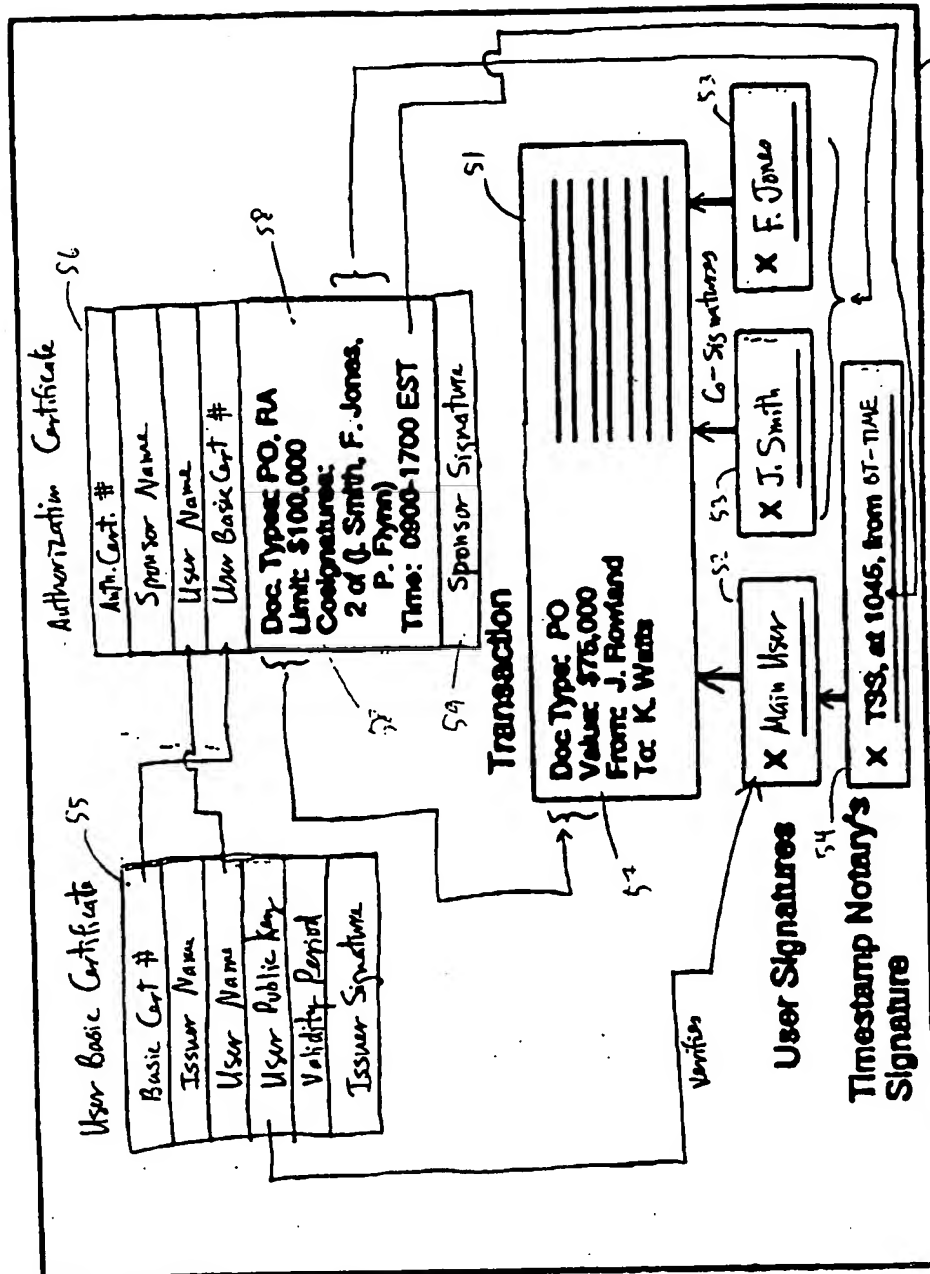 User Basic Certificate
55
Basic Cert #
Issuer Name
User Name
User Public Key
Validity Period
Issuer Signature
Authorization Certificate
56
Auth. Cert. #
Sponsor Name
User Name
User Basic Cert #
Doc. Types: PO, RA
Limit: $100,000
Cosignatures:
2 of (J. Smith, F. Jones,
P. Flynn)
Time: 0900-1700 EST
58
58
Sponsor Signature
59
Transaction
51
Doc Type: PO
Value: $75,000
From: J. Rowland
To: K. Watts
57
Verifies
52
X Main User
53
X J. Smith
Co-Signatures
53
X F. Jones
User Signatures
54
X TSS, at 1045, from ST-TIME
Timestamp Notary's
Signature